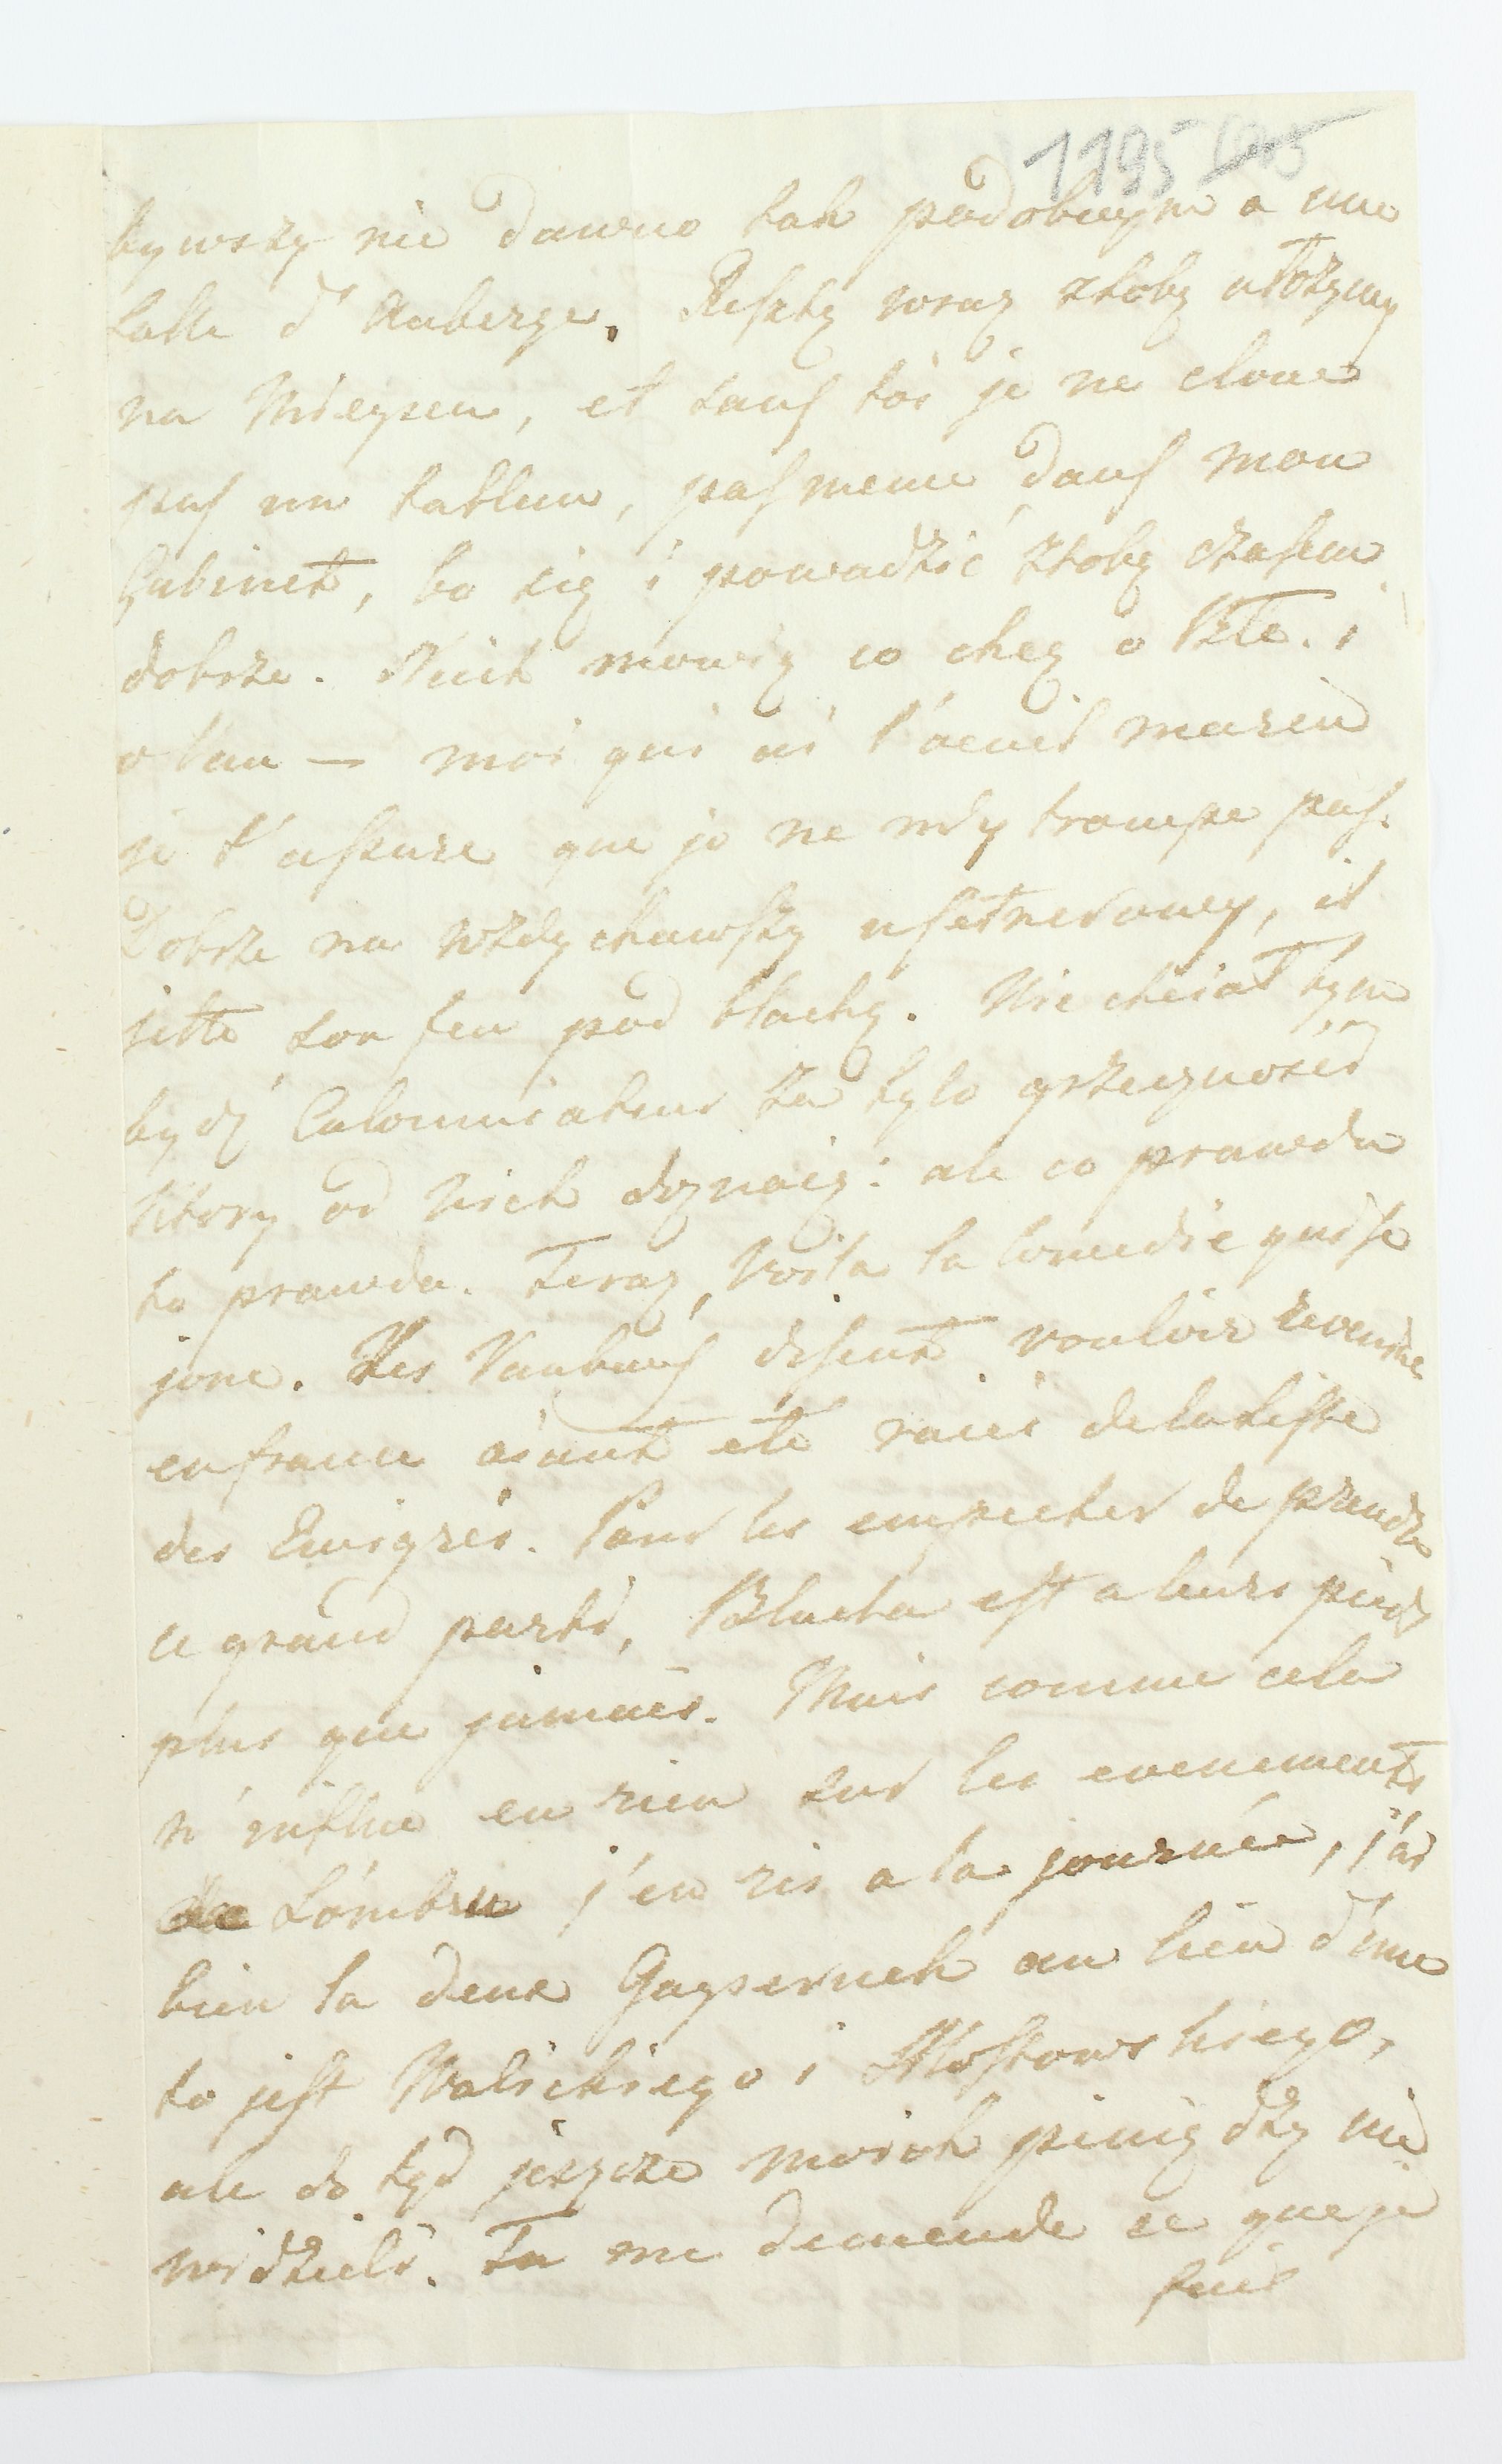 1195
bywszy nie dawno tak podobnym a une
salle d'Auberge. Resztę wraz ztobą ułożymy
na Mieyscu, et sans toi je ne cloue
pas un tableau, pas meme dans mon
Gabinet, bo się i powadzić ztobą czasem
dobrze. Niech mowią co chcą o
moi qui ai l'oeuil marin
je t'assure que je ne m'y trompe pas.
Dobrze na wzdychawszy, il
jette son feu pod blachę. Nie chciał bym
bydź Calomniateur za tyle grzeczności
ktory od nich doznaię: ale co prawda
to prawda. Teraz, voila la Comedie qui se
joue. Les Vauban disent vouloir revenir
en france aiant eté raiés de la Liste
des Emigrés. Pour les empecher de prendre
ce grand parti, Blacha est a leurs pieds
plus que jamais. Mais comme cela
n'influe en rien sur les evenements
de Lombre j'en ris a la journée, j'ai
bien la deux au lieu d'une
to jest Walickiego i Mostowskiego,
ale do tyd jeszcze moich pieniędzy nie
widzieli. Tu me demende ce que je
fais